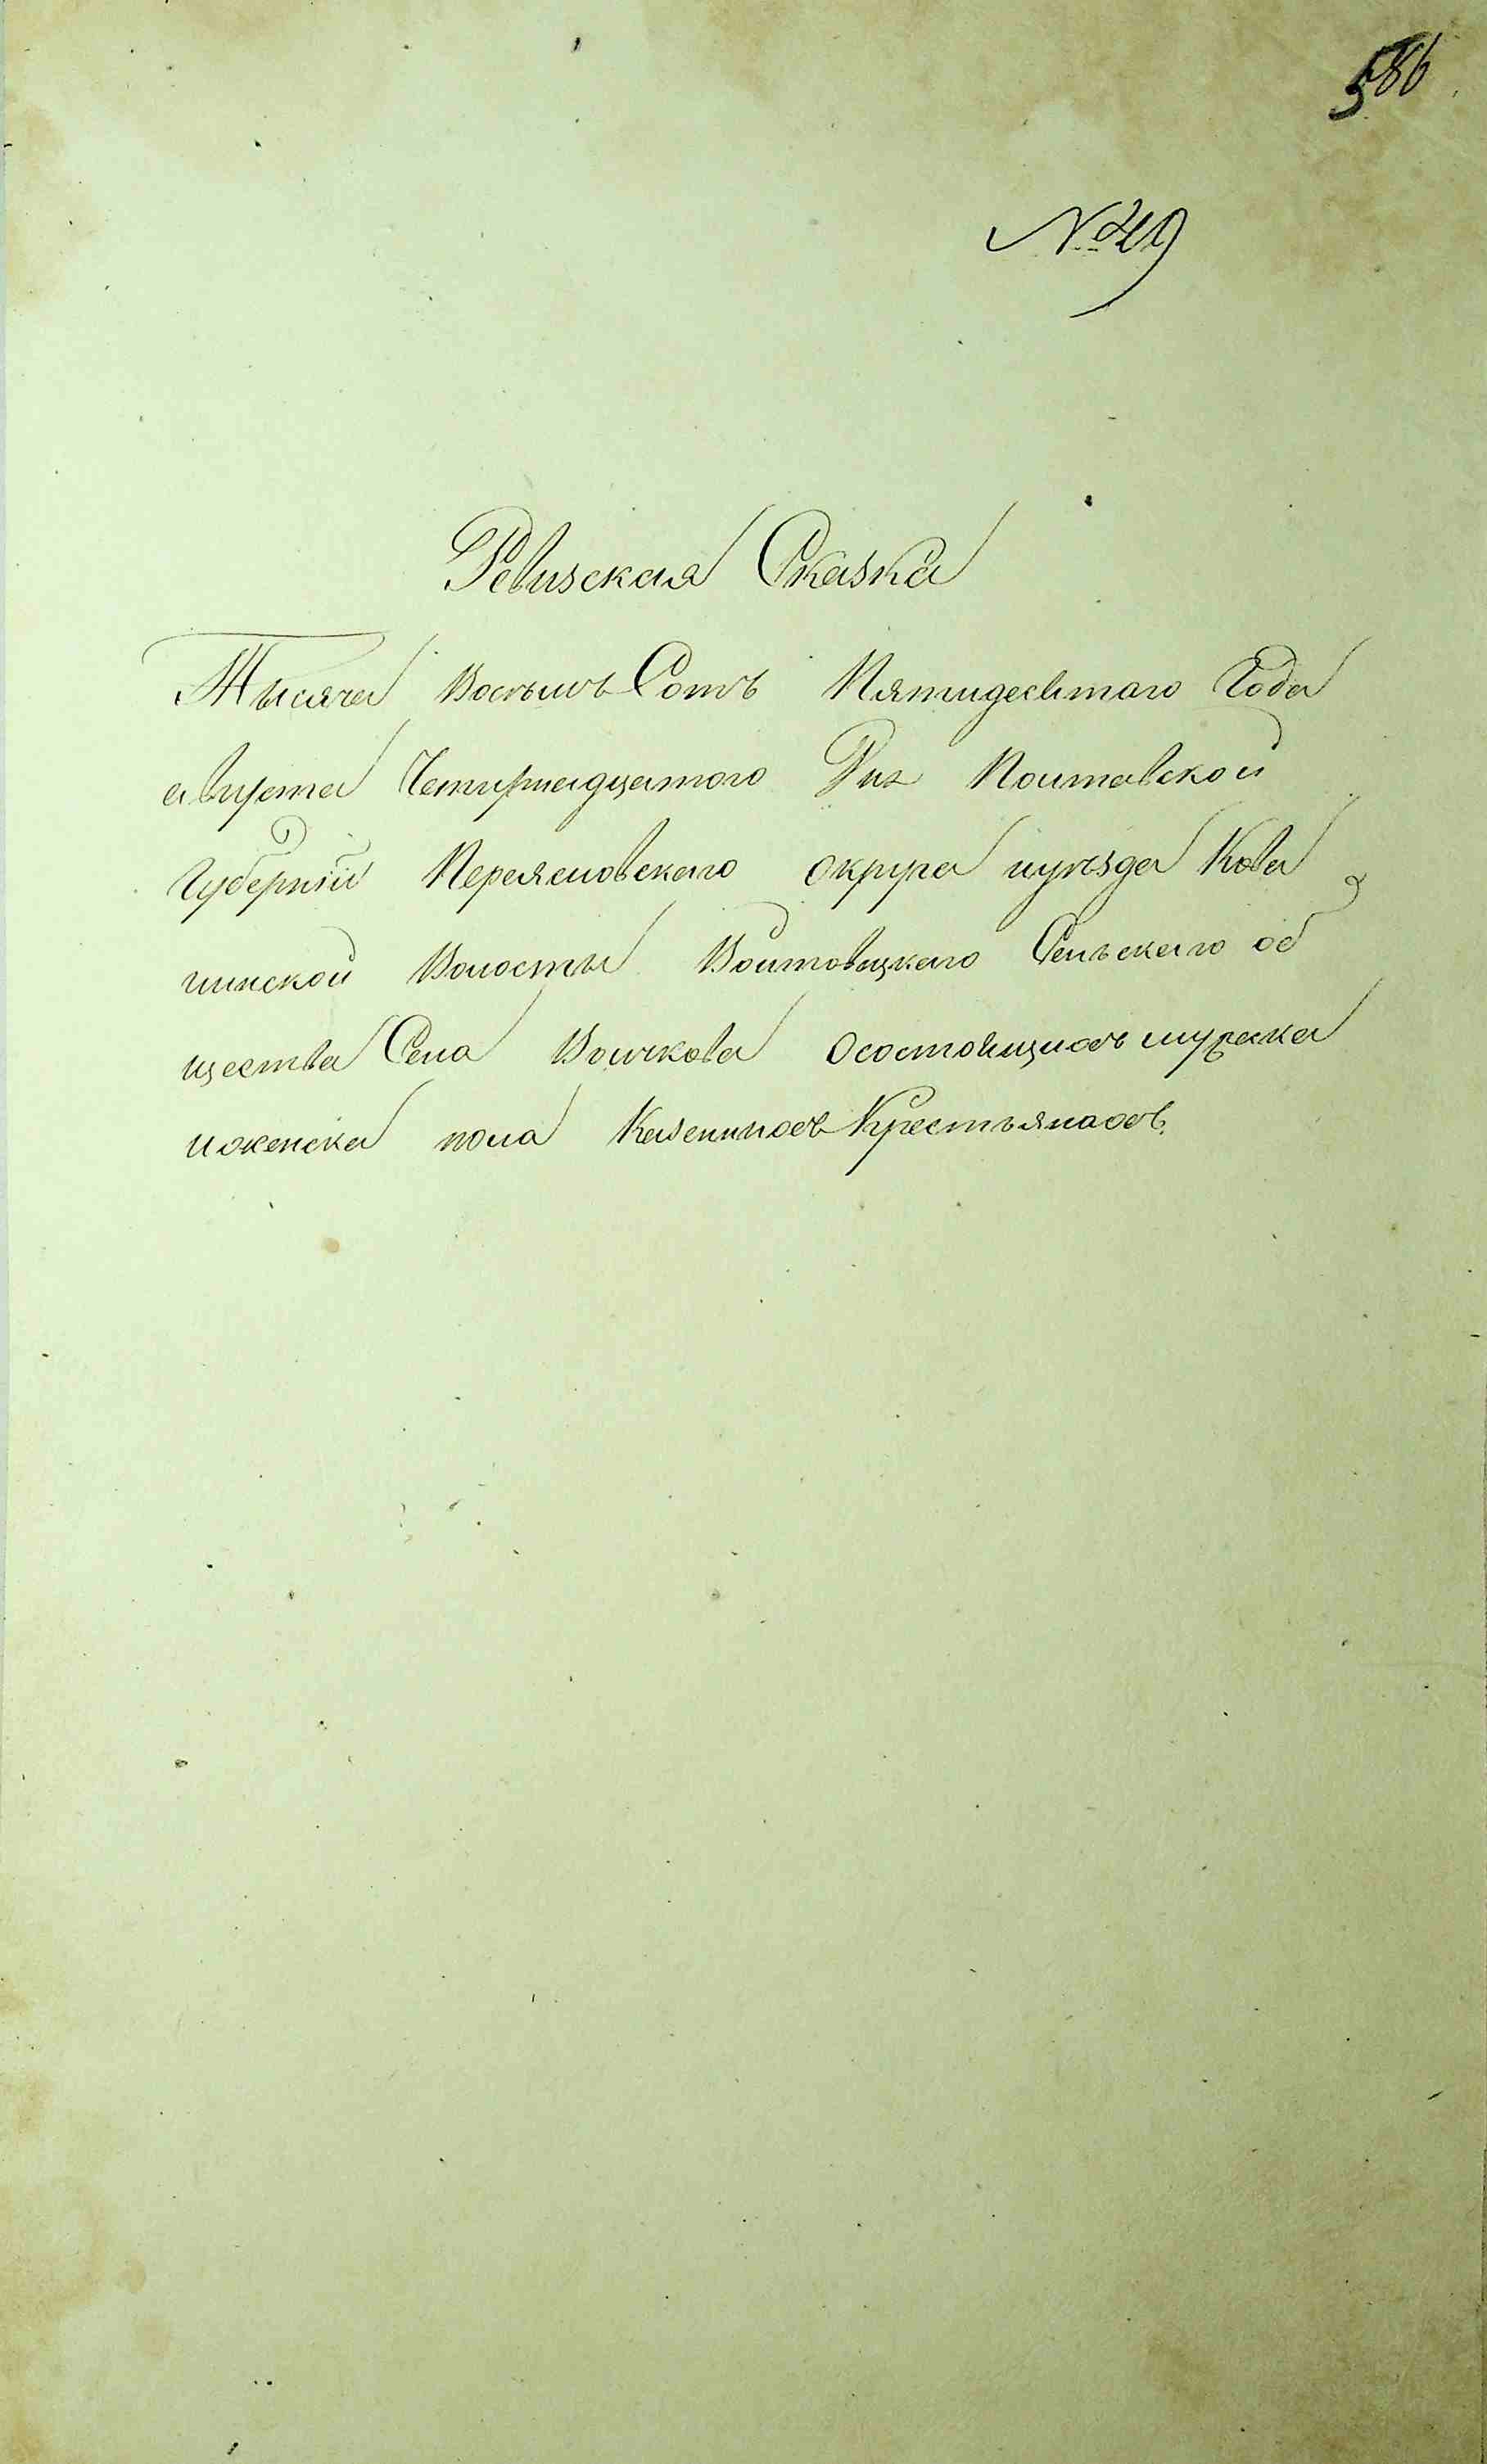 586
№ 219
Ревизская Сказка
Тысяча Восъмь Сотъ Пятидесятого Года
августа Четирнадцатого Дня Полтавской
Губернїи Переяславского округа иуезда Кова
линской Волосты Войтовцкаго Сельскаго об
щества Села Волчкова Осостоящихъ мужеска
иженска пола Казеннихъ Крестьянахъ.